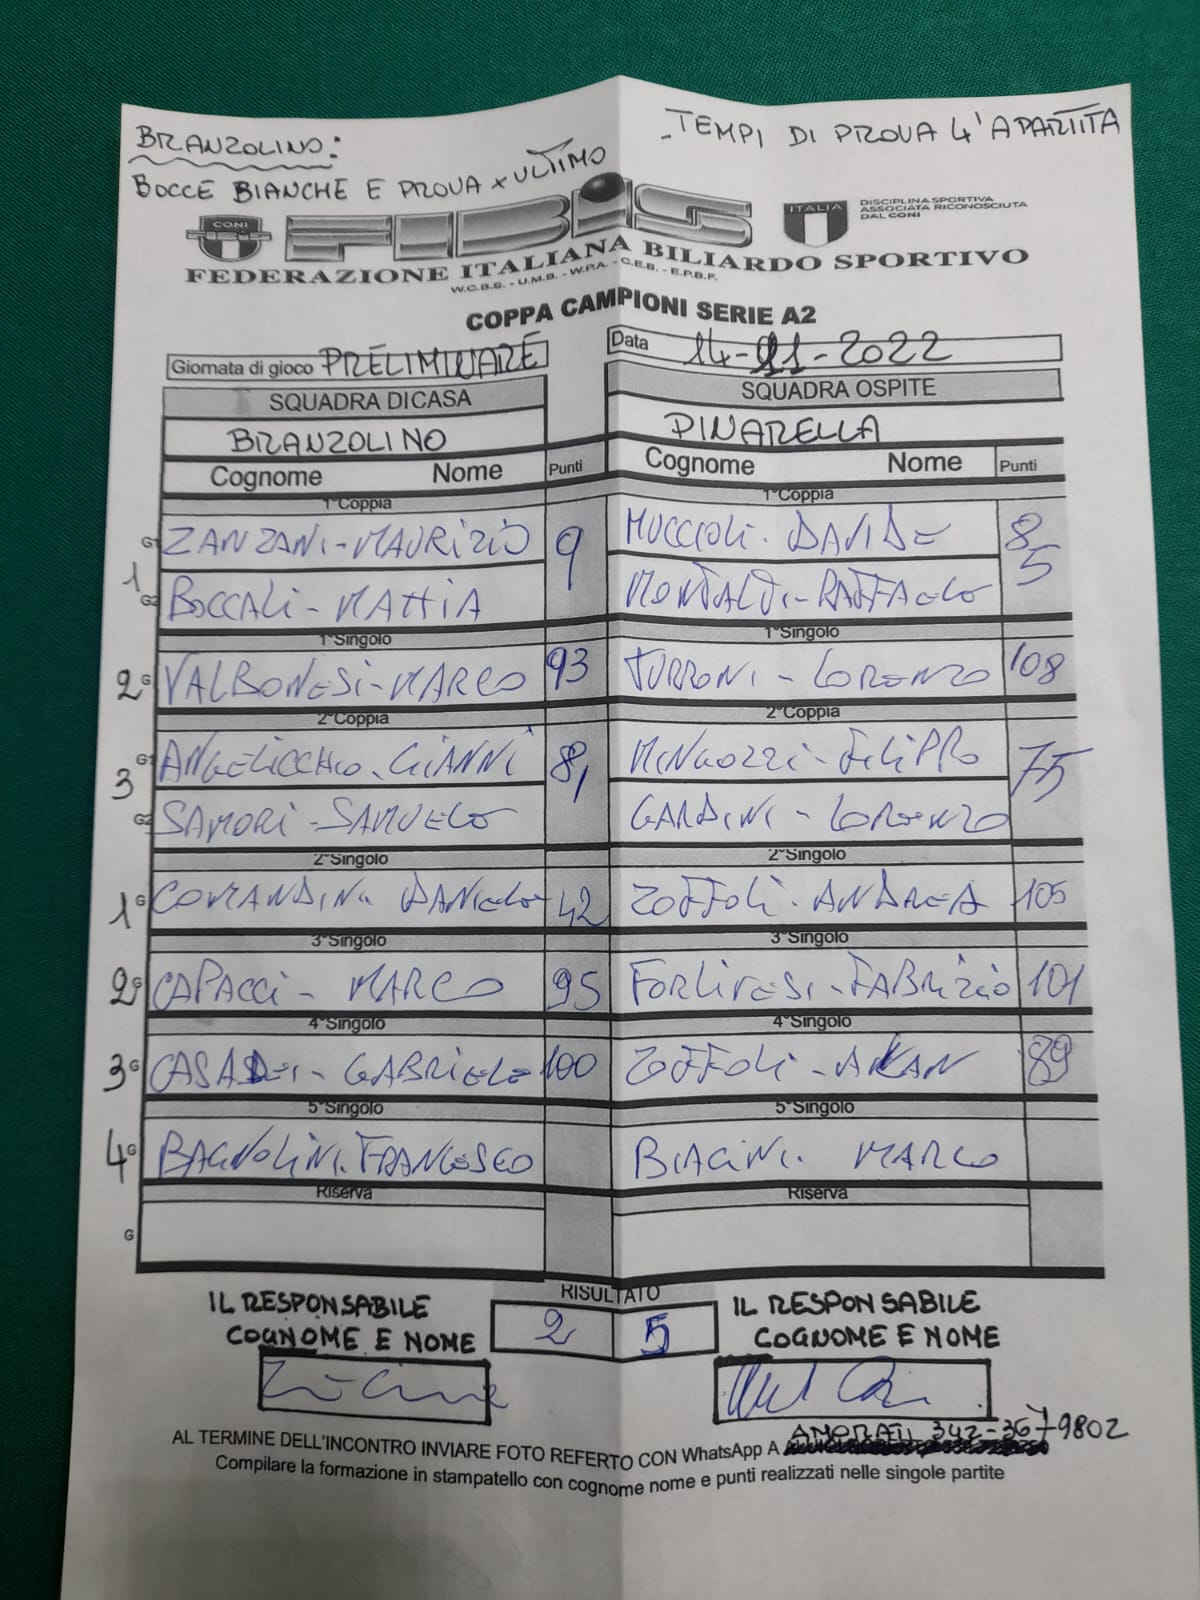 BRANZOLINO:
BOCCE BIANCHE E PROVA x ULTIMO
- TEMPI DI PROVA 4' A PARTITA
CONI
FIBIS
ITALIA
DISCIPLINA SPORTIVA
ASSOCIATA RICONOSCIUTA
DAL CONI
FEDERAZIONE ITALIANA BILIARDO SPORTIVO
W.C.B.S. - U.M.B. - W.P.A. - C.E.B. - E.P.B.F.
COPPA CAMPIONI SERIE A2
Giornata di gioco PRELIMINARE
Data 14-11-2022
SQUADRA DI CASA SQUADRA OSPITE
BRANZOLINO PINARELLA
Cognome Nome Punti Cognome Nome Punti
1°Coppia 1°Coppia
1 G1 ZANZANI-MAURIZIO 9 MUCCIOLI. DAVIDE 85
G2 BOCCALI-MATTIA MONTALDI-RAFFAELE
1°Singolo 1°Singolo
2 G VALBONESI-MARCO 93 TURRONI-LORENZO 108
2°Coppia 2°Coppia
3 G1 ANGELICCHIO. GIANNI 81 MINGOZZI-FILIPPO 75
G2 SAMORI-SAMUELE GARDINI-LORENZO
2°Singolo 2°Singolo
1 G COMANDINI DANIELE 42 ZOFFOLI. ANDREA 105
3°Singolo 3°Singolo
2 G CAPACCI-MARCO 95 FORLIVESI-FABRIZIO 101
4°Singolo 4°Singolo
3 G CASADEI-GABRIELE 100 ZOFFOLI-ALAN 89
5°Singolo 5°Singolo
4 G BAGNOLINI. FRANCESCO BIAGINI. MARCO
Riserva Riserva
G
RISULTATO
IL RESPONSABILE 2 5 IL RESPONSABILE
COGNOME E NOME COGNOME E NOME
AL TERMINE DELL'INCONTRO INVIARE FOTO REFERTO CON WhatsApp A AMORATI 342-3679802
Compilare la formazione in stampatello con cognome nome e punti realizzati nelle singole partite